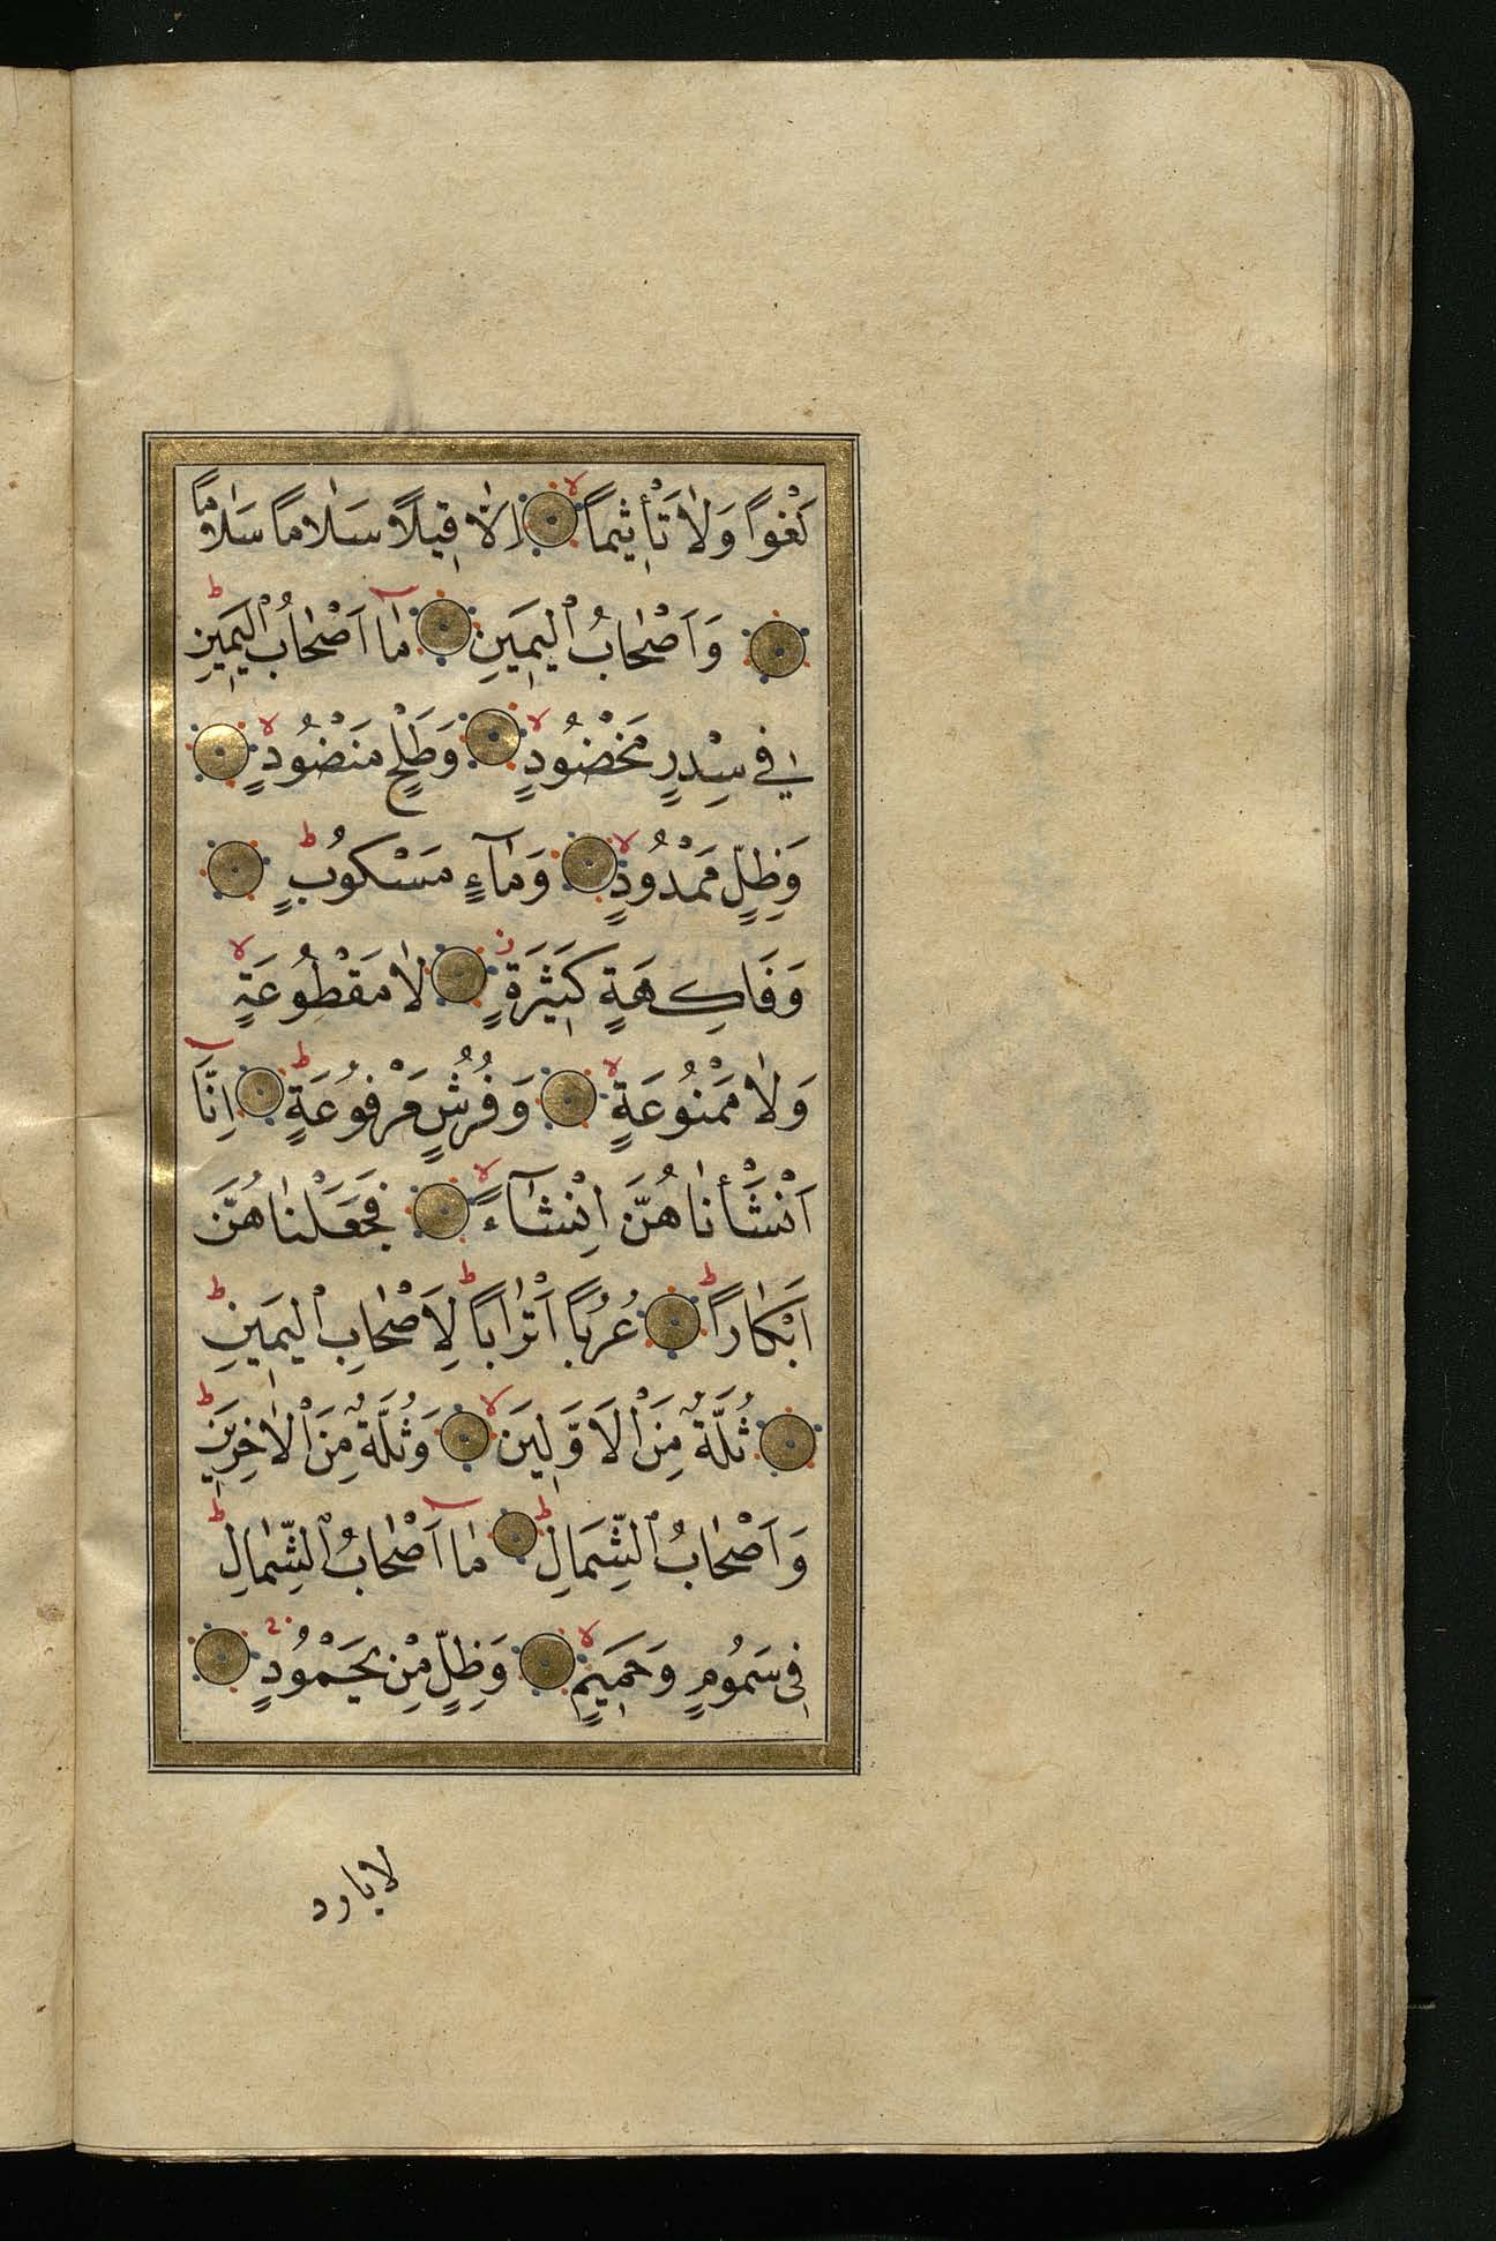 لَغْوًا وَلَا تَأْثِيمًا اِلَّا قِيلًا سَلَامًا سَلَامًا
وَاَصْحَابُ الْيَمِينِ مَٓا اَصْحَابُ الْيَمِينِ
فِي سِدْرٍ مَخْضُودٍ وَطَلْحٍ مَنْضُودٍ
وَظِلٍّ مَمْدُودٍ وَمَٓاءٍ مَسْكُوبٍ
وَفَاكِهَةٍ كَثِيرَةٍ لَا مَقْطُوعَةٍ
وَلَا مَمْنُوعَةٍ وَفُرُشٍ مَرْفُوعَةٍ اِنَّٓا
اَنْشَأْنَاهُنَّ اِنْشَٓاءً فَجَعَلْنَاهُنَّ
اَبْكَارًا عُرُبًا اَتْرَابًا لِاَصْحَابِ الْيَمِينِ
ثُلَّةٌ مِنَ الْاَوَّلِينَ وَثُلَّةٌ مِنَ الْاٰخِرِينَ
وَاَصْحَابُ الشِّمَالِ مَٓا اَصْحَابُ الشِّمَالِ
فِى سَمُومٍ وَحَمِيمٍ وَظِلٍّ مِنْ يَحْمُودٍ
لا بارد